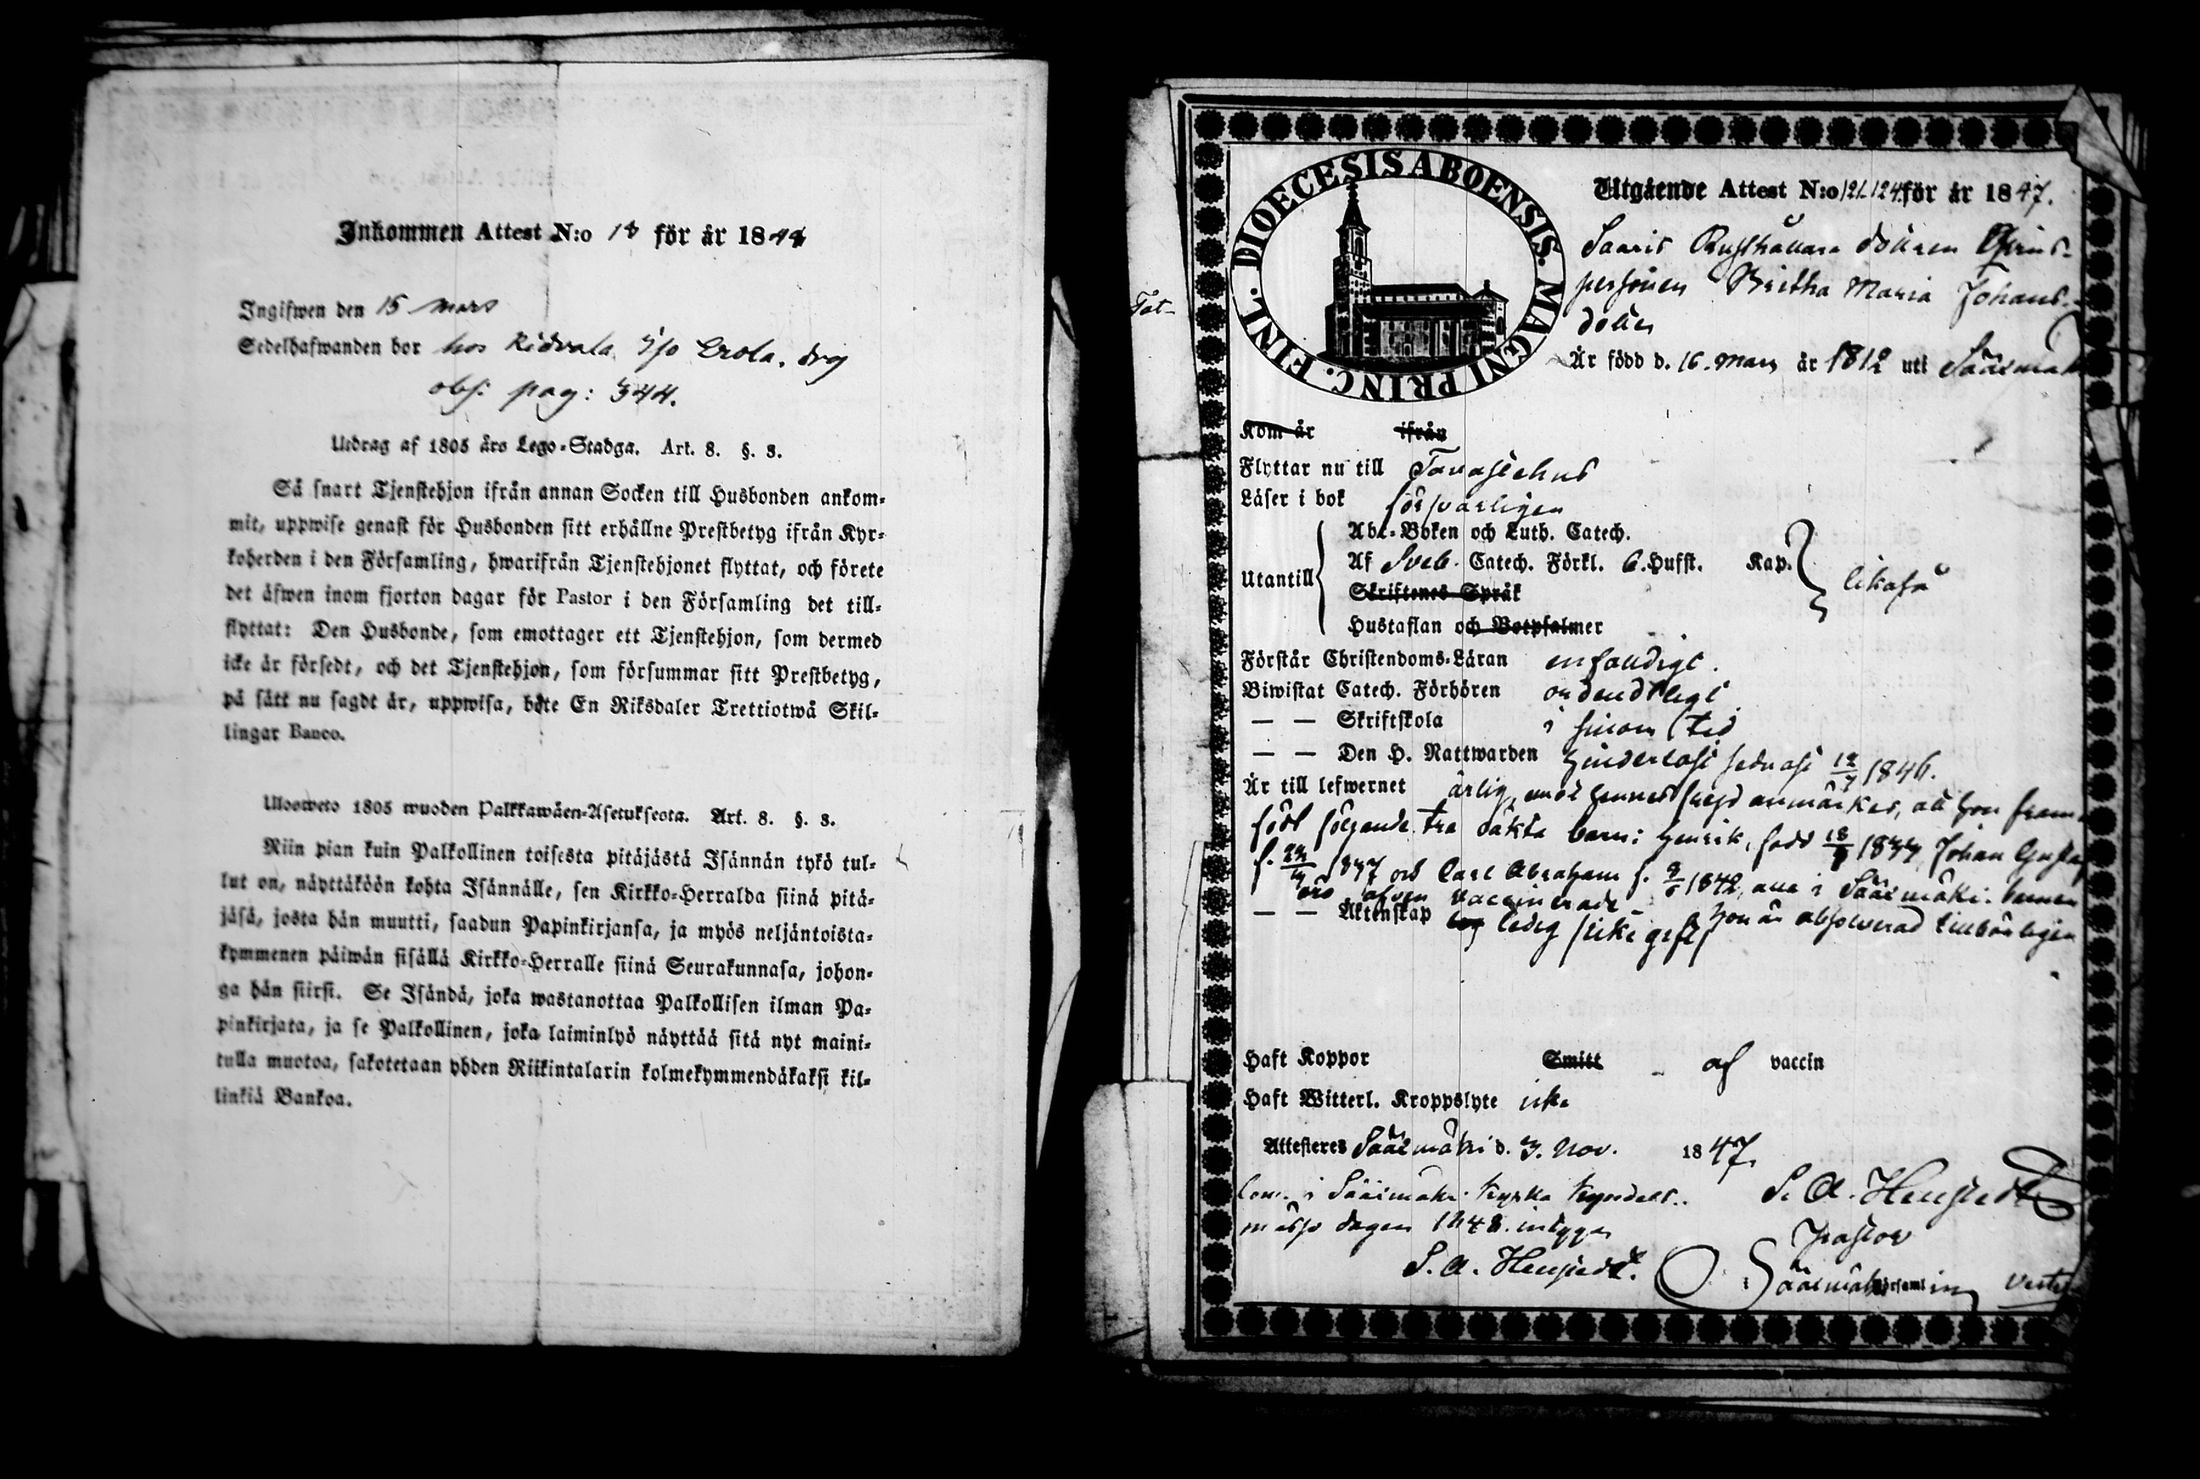 Inkommen Attest N:o 18 för år 1848
Ingifwen den 15 Mars
Sedelhafwanden bor hos Ridvala
obs: pag: 344.
Utdrag af 1805 års Lego-Stadga. Art. 8. §. 3.
Så snart Tjenstehjon ifrån annan Socken till Husbonden ankom-
mit, uppwise genast för Husbonden sitt erhållne Prestbetyg ifrån Kyr-
koherden i den Församling, hwarifrån Tjenstehjonet flyttat, och förete
det äfwen inom fjorton dagar för Pastor i den Församling det till-
flyttat: Den Husbonde, som emottager ett Tjenstehjon, som dermed
icke är försedt, och det Tjenstehjon, som försummar sitt Prestbetyg,
på sätt nu sagdt är, uppwisa, böte En Riksdaler Trettiotwå Skil-
lingar Banco.
Uloosweto 1805 wuoden Palkkawäen-Asetuksesta. Art. 8. §. 3.
Niin pian kuin Palkollinen toisesta pitäjästä Isännän tykö tul-
lut on, näyttäköön kohta Isännälle, sen Kirkko-Herralda siinä pitä-
jäsä, josta hän muutti, saadun Papinkirjansa, ja myös neljäntoista-
kymmenen päiwän sisällä Kirkko-Herralle siinä Seurakunnasa, johon-
ga hän siirsi. Se Isändä, joka wastanottaa Palkollisen ilman Pa-
pinkirjata, ja se Palkollinen, joka laiminlyö näyttää sitä nyt maini-
tulla muotoa, sakotetaan yhden Riikintalarin kolmekymmendäkaksi kil-
linkiä Bankoa.
DIOECESIS ABOENSIS. MAGNI PRINC. FINL.
Utgående Attest N:o 121-124 för år 1847.
Saaris Rusthållare dottren Qvins-
personen Britha Maria Johans-
dotter
Är född d. 16. Mars år 1812 uti Sääxmäki
Kom år ifrån
Flyttar nu till Tavastehus
Läser i bok försvarligen
Abc-Boken och Luth. Catech.
Utantill Af Sveb. Catech. Förkl. 6. Hufst. Kap. likaså
Skriftenes Språk
Hustaflan och Botpsalmer
Förstår Christendoms-Läran enfaldigt.
Biwistat Catech. Förhören ordentligt
— — Skriftskola i sinom tid
— — Den H. Nattwarden sednast 12/7 1846.
Är till lefwernet ärlig, emot hennes frejd anmärkes, att hon fram-
födt följande tre oäkta barn: Henrik, född 1834, Johan Gustaf
f. 1837 och Carl Abraham f. 1842, alla i Sääxmäki. barnen
äro äfven vaccinerade. Hon är absolverad
— — Äktenskap ledig icke gift
Haft Koppor Smitt af vaccin
Haft Witterl. Kroppslyte icke
Attesteras Sääxmäki d. 3. Nov. 1847
i Sääxmäki kyrka kyndels-
mässo dagen 1848. intygar
S. A.
S. A.
Pastor
i Sääxmäki Församling